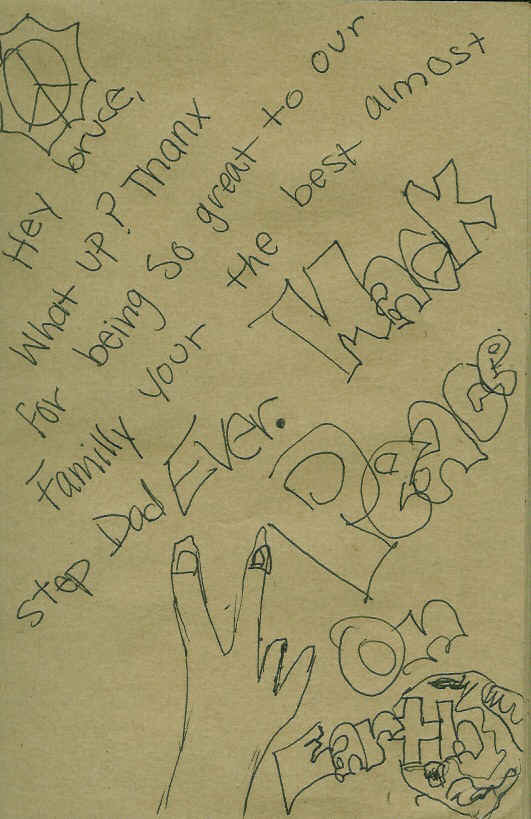 Hey bruce,
What up? Thanx
For being So great to our
Familly your the best almost
Step Dad Ever.
Mack
Peace
On
Earth